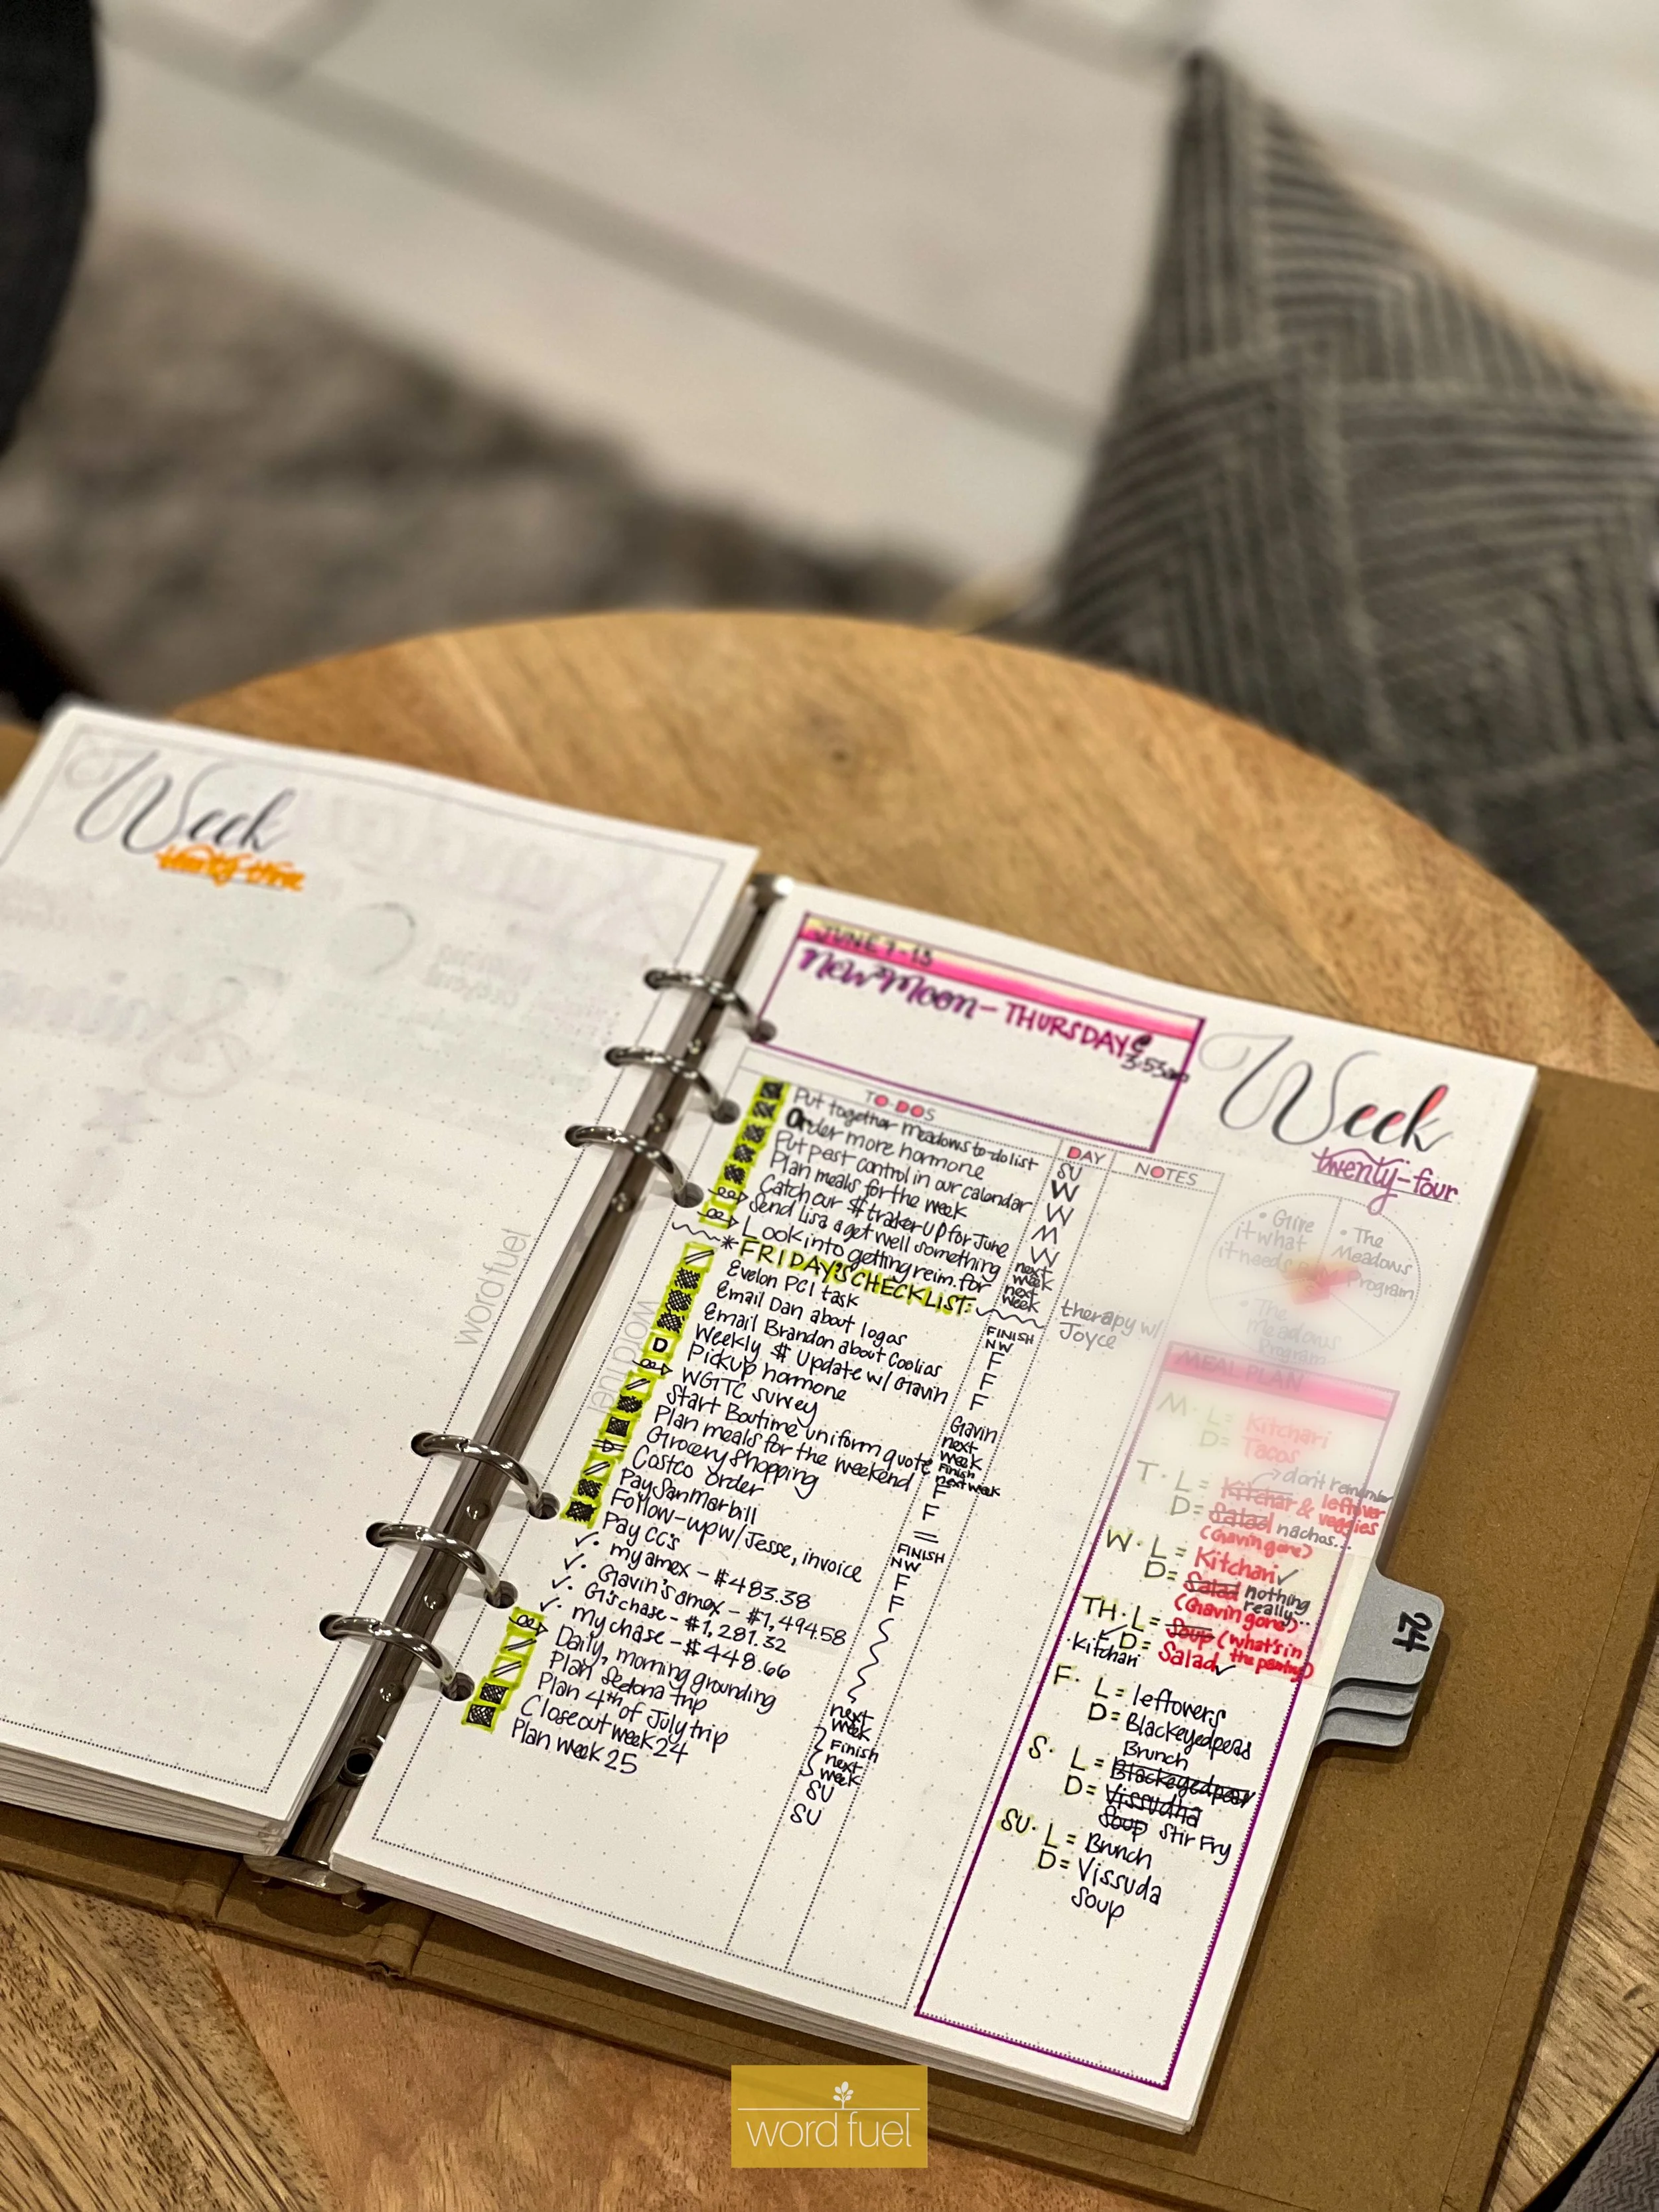 Week
twenty-three
word fuel
JUNE 7-13
New Moon - THURSDAY @
3:53am
Week
twenty-four
TO-DOS
DAY
NOTES
Put together meadows to do list
SU
Order more hormone
W
Put pest control in our calendar
W
Plan meals for the week
M
Catch our $ traker up for June
W
Send Lisa a get well something
next week
Look into getting reim. for
next week
therapy w/
Joyce
* FRIDAY'S CHECKLIST:
Evelon PCI task
FINISH NW
Email Dan about logos
F
Email Brandon about coolios
F
Weekly $ Update w/ Gavin
F
D
Pickup hormone
Gavin
WGTTC survey
next week
Start Boutime uniform quote
Finish next week
Plan meals for the weekend
F
Grocery shopping
F
Costco order
=
Pay SanMar bill
FINISH NW
Follow-up w/ Jesse, invoice
F
Pay CC's
F
✓ • my amex - $483.38
✓ • Gavin's amex - $1,494.58
✓ • G's chase - $1,281.32
✓ • my chase - $448.66
Daily, morning grounding
next week
Plan Sedona trip
Plan 4th of July trip
Finish next week
Closeout week 24
SU
Plan week 25
SU
word fuel
• Give
it what
it needs
• The
Meadows
Program
• The
Meadows
Program
MEAL PLAN
M • L = Kitchari
D = Tacos
T • L = Kitchar & leftover veggies
don't remember
D = Salad nachos...
(Gavin gone)
W • L = Kitchari ✓
D = Salad nothing really...
(Gavin gone)
TH • L = Soup (what's in the pantry)
• Kitchari
D = Salad ✓
F • L = leftovers
D = Blackeyedpeas
S • L = Brunch
Blackeyedpeas
D = Vissudha
Soup Stir Fry
SU • L = Brunch
D = Vissuda
Soup
24
word fuel